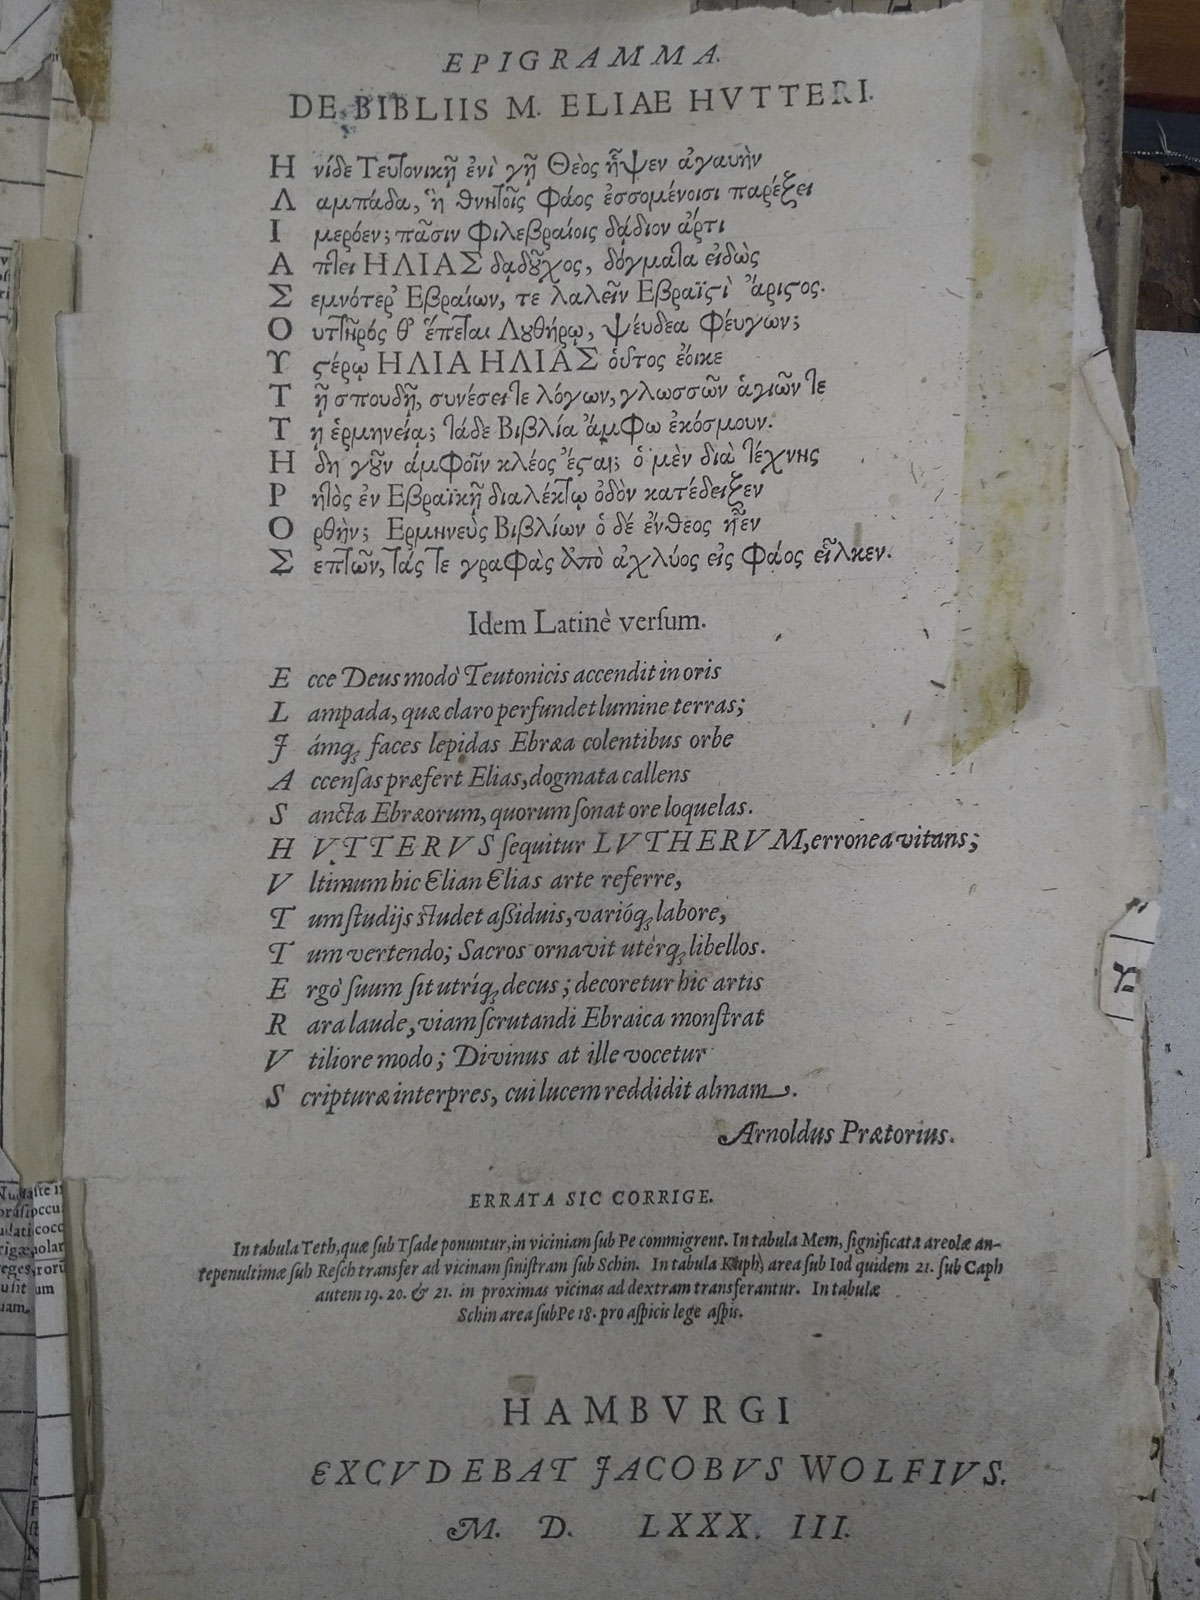 EPIGRAMMA.
DE BIBLIIS M. ELIAE HVTTERI.
Η νίδε Τευτονικῇ ἐνὶ γῇ Θεὸς ἧψεν ἀγαυὴν
Λ αμπάδα, ἣ θνητοῖς φάος ἐσσομένοισι παρέξει
Ι μερόεν; πᾶσιν Φιλεβραίοις δᾴδιον ἄρτι
Α πτει ΗΛΙΑΣ δᾳδοῦχος, δόγματα εἰδὼς
Σ εμνότερ' Εβραίων, τε λαλεῖν Εβραϊςὶ ἄριςος.
Ο υττῆρός θ' ἕπεται Λουθήρῳ, ψέυδεα φέυγων;
Υ ςέρῳ ΗΛΙΑ ΗΛΙΑΣ οὗτος ἔοικε
Τ ῇ σπουδῇ, συνέσει τε λόγων, γλωσσῶν ἁγιῶν τε
Τ ῃ ἑρμηνείᾳ; τάδε Βιβλία ἄμφω ἐκόσμουν.
Η δη γοῦν ἀμφοῖν κλέος ἔςαι; ὁ μὲν διὰ τέχνης
Ρ ητὸς ἐν Εβραϊκῇ διαλέκτῳ ὁδὸν κατέδειξεν
Ο ρθὴν; Ερμηνεὺς Βιβλίων ὁ δέ ἔνθεος ἦεν
Σ επτῶν, τάς τε γραφὰς ἀπὸ ἀχλύος εἰς φάος εἷλκεν.
Idem Latinè verſum.
E cce Deus modò Teutonicis accendit in oris
L ampada, quæ claro perfundet lumine terras;
J ámq; faces lepidas Ebræa colentibus orbe
A ccenſas præfert Elias, dogmata callens
S ancta Ebræorum, quorum ſonat ore loquelas.
H VTTERVS ſequitur LVTHERVM, erronea vitans;
V ltimum hic Elian Elias arte referre,
T um ſtudijs ſtudet aßiduis, varióq; labore,
T um vertendo; Sacros ornavit utérq; libellos.
E rgò ſuum ſit utríq; decus; decoretur hic artis
R ara laude, viam ſcrutandi Ebraica monſtrat
V tiliore modo; Divinus at ille vocetur
S cripturæ interpres, cui lucem reddidit almam.
Arnoldus Prætorius.
ERRATA SIC CORRIGE.
In tabula Teth, quæ ſub Tſade ponuntur, in viciniam ſub Pe commigrent. In tabula Mem, ſignificata areolæ an-
tepenultimæ ſub Reſch transfer ad vicinam ſiniſtram ſub Schin. In tabula Kuph, area ſub Iod quidem 21. ſub Caph
autem 19. 20. & 21. in proximas vicinas ad dextram transferantur. In tabulæ
Schin area ſub Pe 18. pro aſpicis lege aſpis.
HAMBVRGI
EXCVDEBAT JACOBVS WOLFIVS.
M. D. LXXX. III.